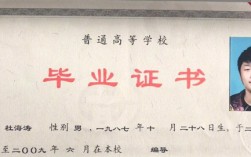 普通高等学校
毕业证书
杜海涛 性别 男，一九八七年 十 月二十八日生，于二
至二00九年 六 月在本校 编导